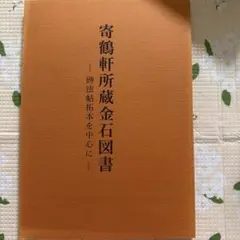 寄鶴軒所蔵金石図書
―碑法帖拓本を中心に―